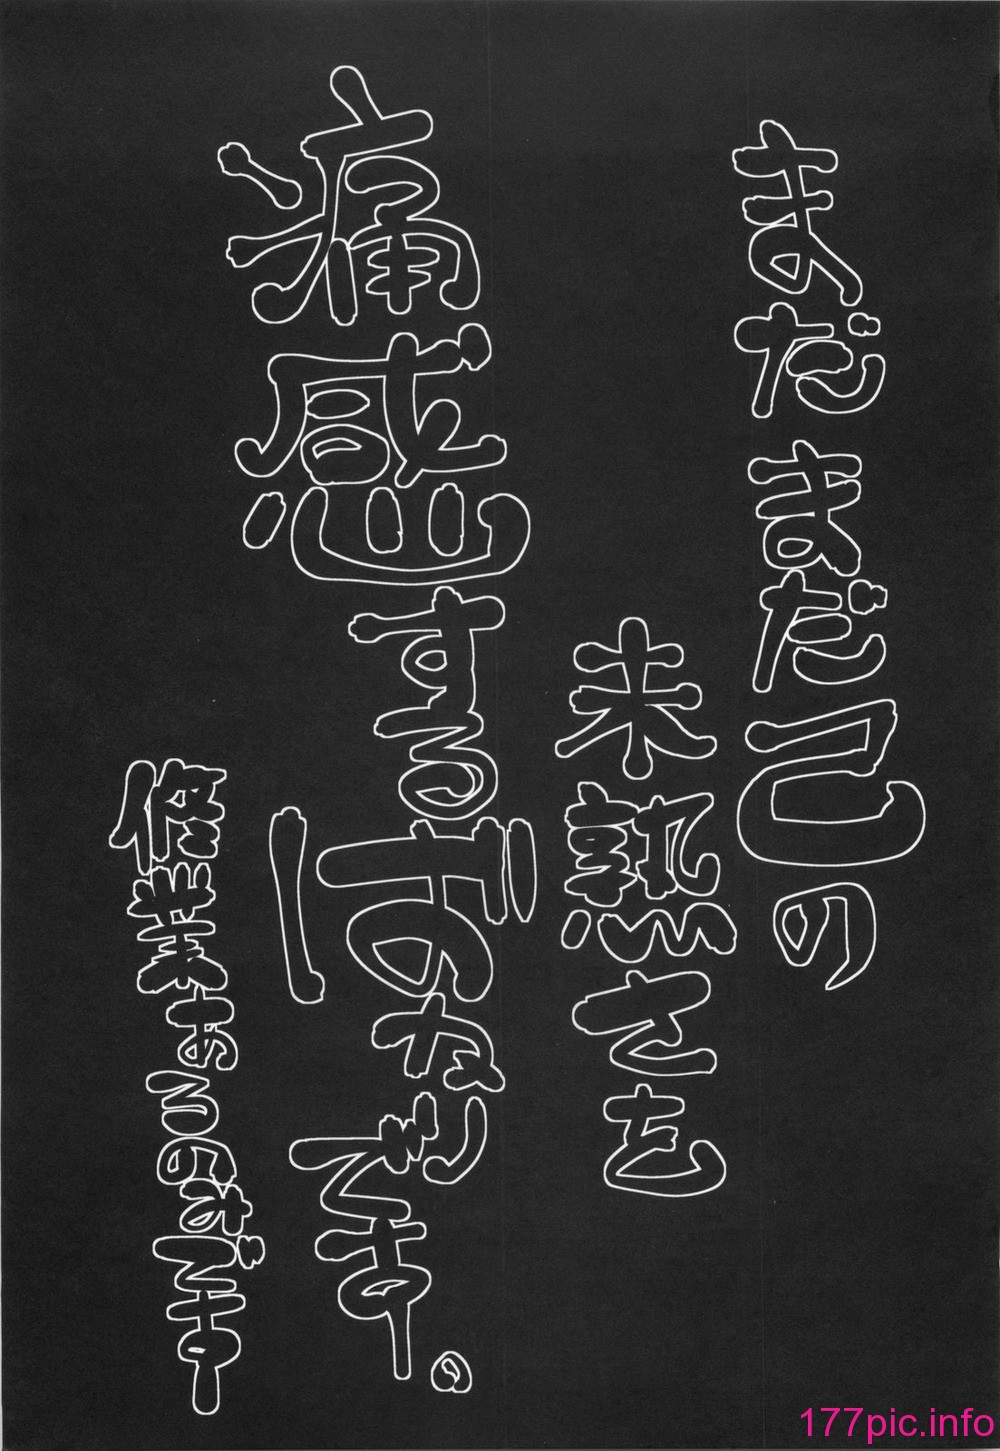 まだまだ己の
未熟さを
痛感するばかりです。
修業あるのみです
177pic.info